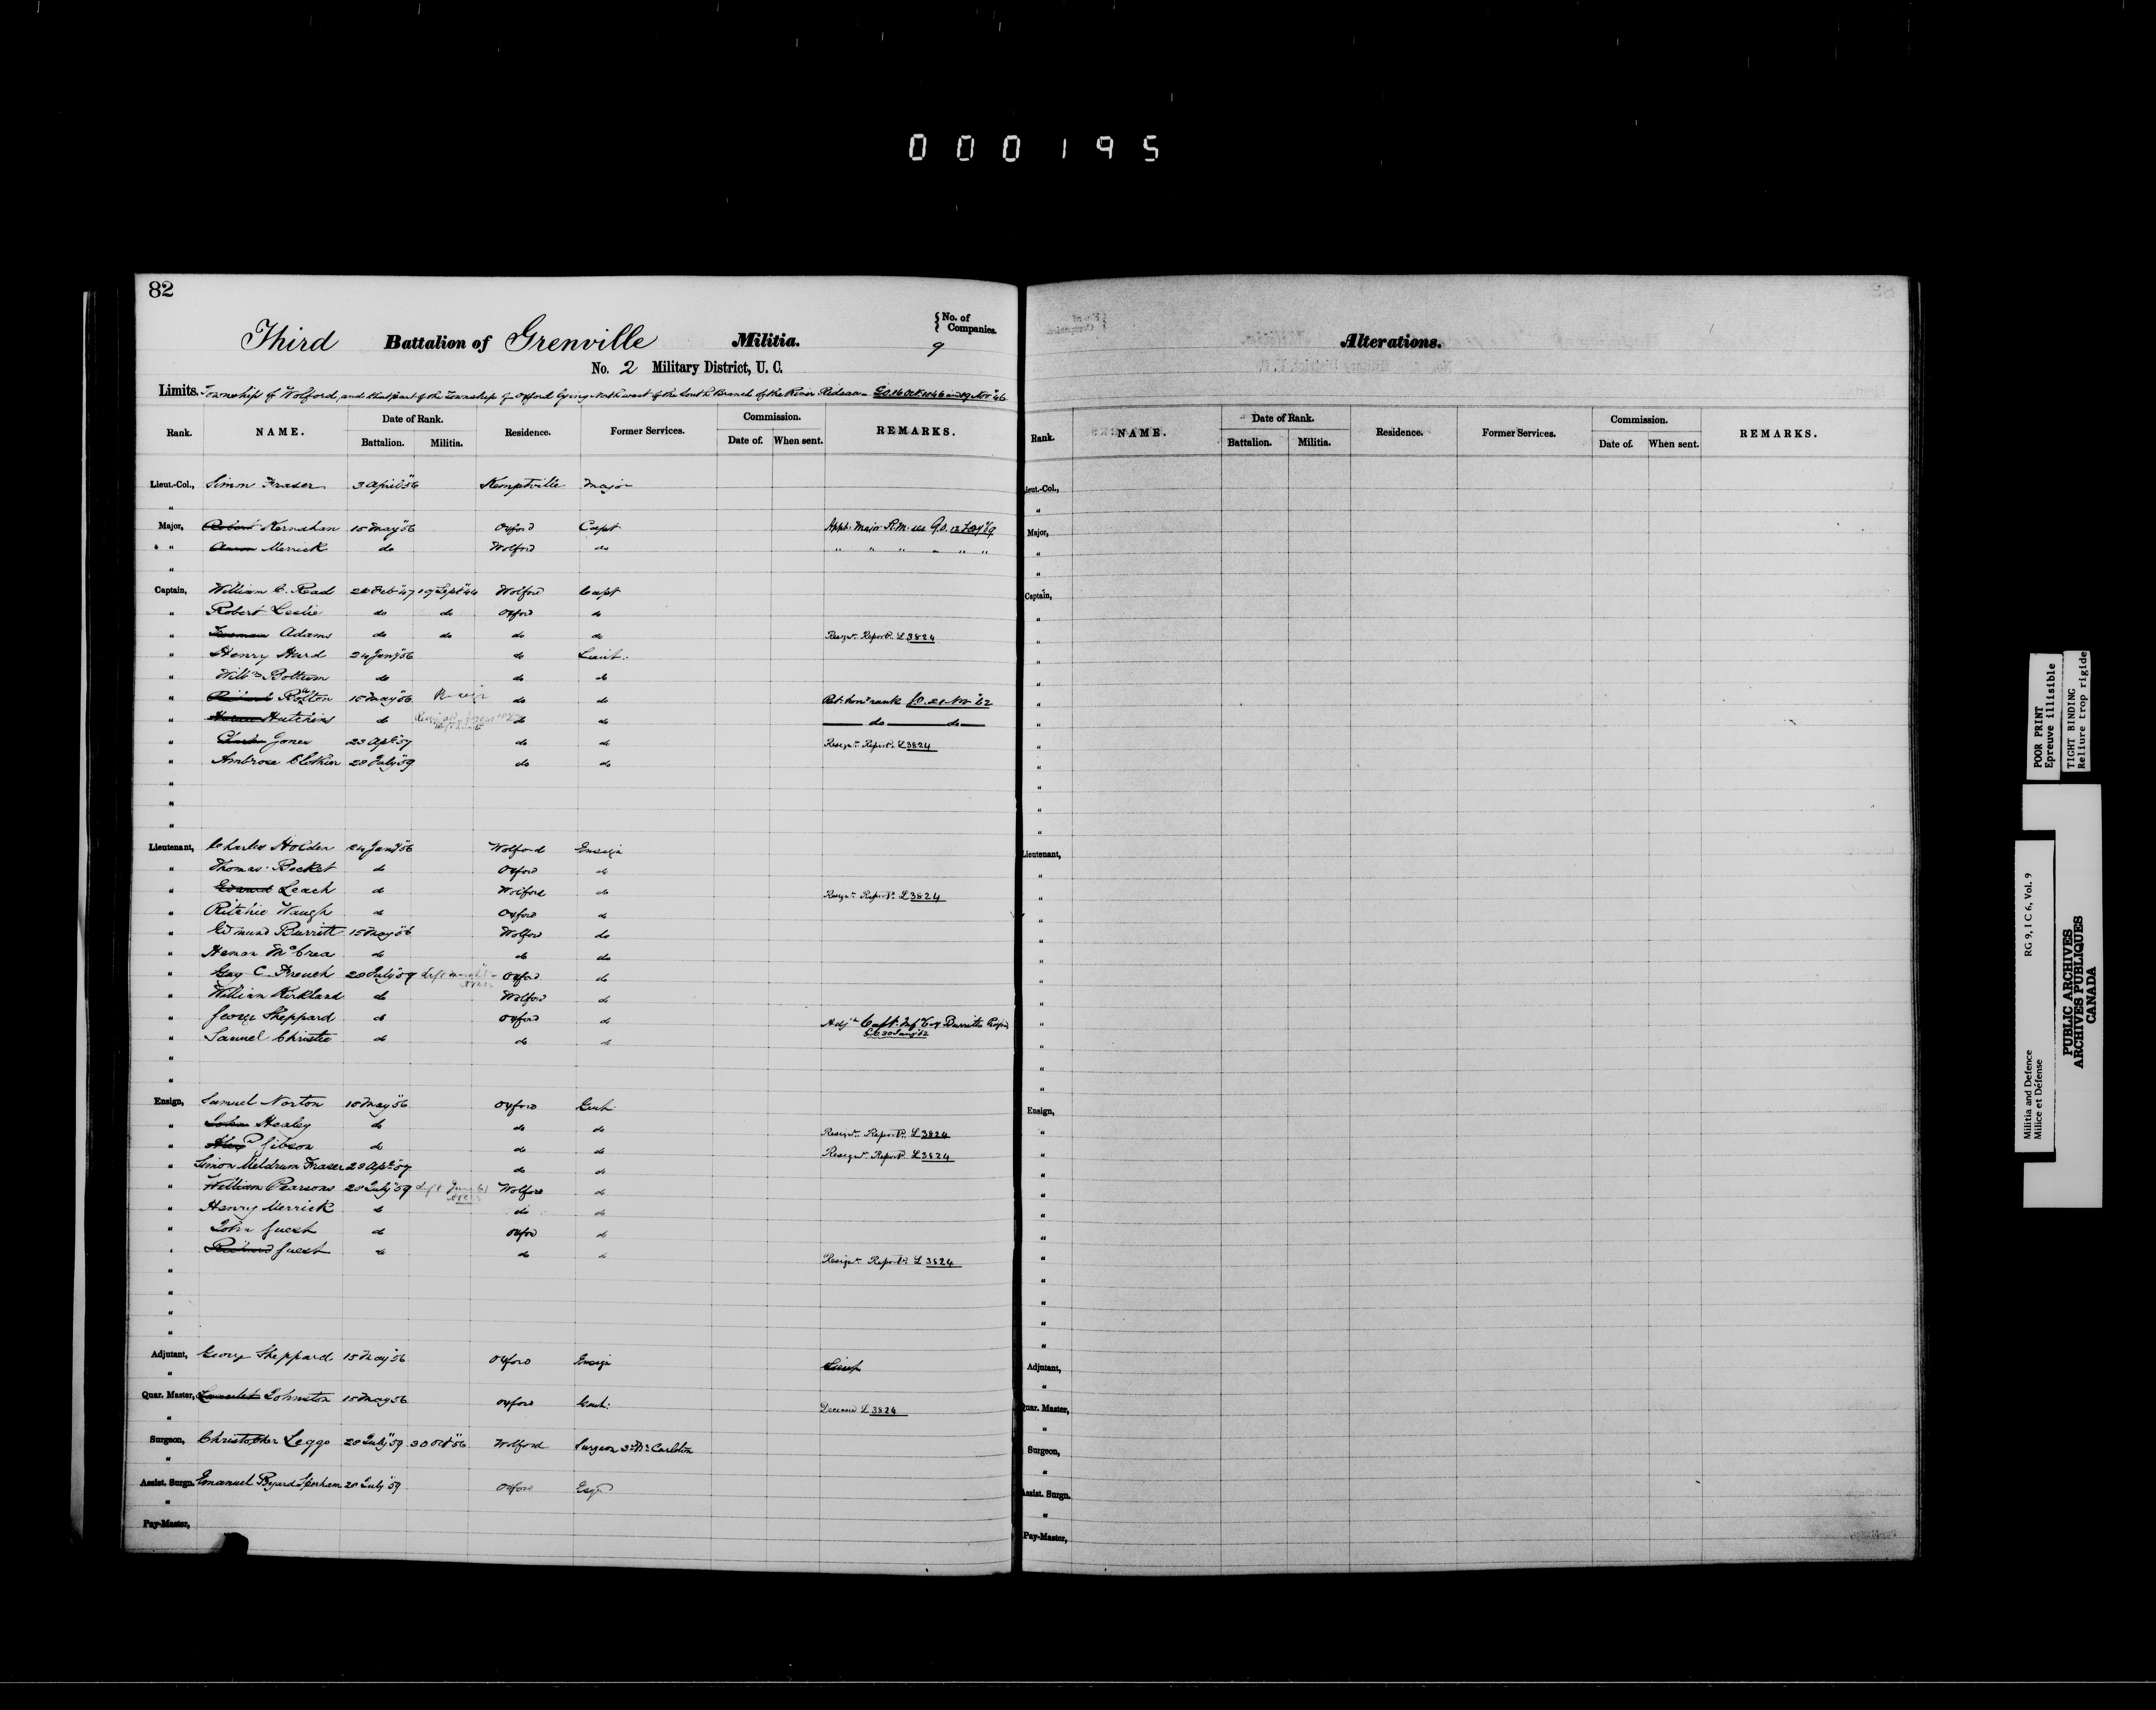 000195
82
Third Battalion of Grenville Militia. { No. of Companies. 9
No. 2 Military District, U. C.
Limits. Townships of Wolford, and that part of the Township of Oxford lying North west of the South Branch of the River Rideau
Rank. NAME. Date of Rank. Battalion. Militia. Residence. Former Services. Commission. Date of. When sent. REMARKS.
Lieut.-Col., Simon Fraser 3 April '56 Kemptville Major
"
Major, Robert Kernahan 15 May '56 Oxford Capt Appt. Major R.M. see G.O. 12
" Aaron Merrick do Wolford do " " " " " "
"
Captain, William C. Read 26 Feb '47 19 Sept '46 Wolford Capt
" Robert Leslie do do Oxford do
" Adams do do do do Resign. Report. L 3824
" Henry Hurd 24 Jany '56 do Lieut.
" Willm Bottum do do do
" Rolston 15 May '56 do do Ret. hon. rank G.O. 21 Nov '62
" Hutchins do do do do do
" Charles Jones 23 Apl '57 do do Resign. Report. L 3824
" Ambrose Clothier 28 July '59 do do
"
"
"
Lieutenant, Charles Holden 24 Jany '56 Wolford Ensign
" Thomas Becket do Oxford do
" Edward Leach do Wolford do Resign. Report. L 3824
" Ritchie Waugh do Oxford do
" Edmund Burritt 15 May '56 Wolford do
" Heman McCrea do do do
" Gay C. French 28 July '59 left Oxford do
" William Kirkland do Wolford do
" George Sheppard do Oxford do Adjt Capt. Burritts
" Samuel Christie do do do
"
"
Ensign, Samuel Norton 15 May '56 Oxford Gent.
" John Healey do do do Resign. Report. L 3824
" Alexr Gibson do do do Resign. Report. L 3824
" Simon Meldrum Fraser 23 Apl '57 do do
" William Pearsons 28 July '59 left Wolford do
" Henry Merrick do do do
" John Guest do Oxford do
" Richard Guest do do do Resign. Report. L 3824
"
"
"
"
Adjutant, George Sheppard 15 May '56 Oxford Ensign Lieut
"
Quar. Master, Johnston 15 May '56 Oxford Gent. Deceased L 3824
"
Surgeon, Christopher Leggo 28 July '59 30 Oct '56 Wolford Surgeon 3rd Bn Carleton
"
Assist. Surgn. Emanuel Byard Sparham 28 July '59 Oxford Esqr
"
Pay-Master,
Alterations.
Rank. NAME. Date of Rank. Battalion. Militia. Residence. Former Services. Commission. Date of. When sent. REMARKS.
Lieut.-Col.,
"
Major,
"
"
Captain,
"
"
"
"
"
"
"
"
"
"
"
Lieutenant,
"
"
"
"
"
"
"
"
"
"
"
Ensign,
"
"
"
"
"
"
"
"
"
"
"
Adjutant,
"
Quar. Master,
"
Surgeon,
"
Assist. Surgn.
"
Pay-Master,
POOR PRINT
Epreuve illisible
TIGHT BINDING
Reliure trop rigide
Militia and Defence
Milice et Défense
RG 9, I C 6, Vol. 9
PUBLIC ARCHIVES
ARCHIVES PUBLIQUES
CANADA